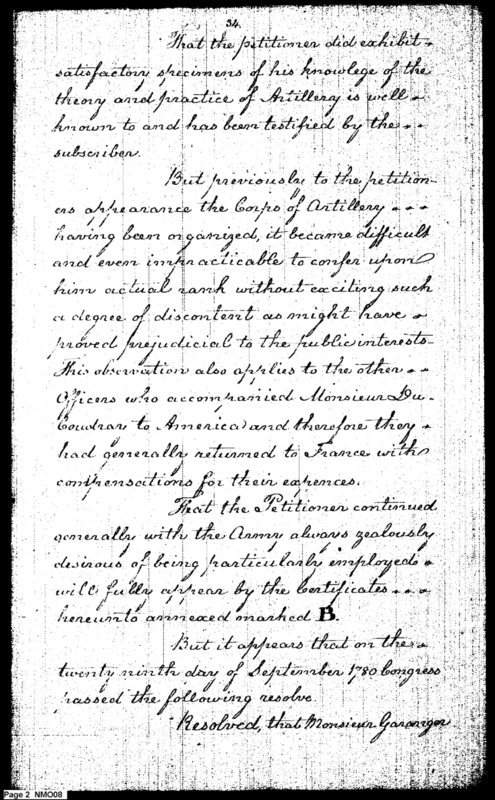 34.
That the petitioner did exhibit
satisfactory specimens of his knowlege of the
theory and practice of Artillery is well
known to and has been testified by the
subscriber.
But previously to the petition-
ers appearance the Corps of Artillery
having been organized, it became difficult
and even impracticable to confer upon
him actual rank without exciting such
a degree of discontent as might have
proved prejudicial to the public interests.
This observation also applies to the other
Officers who accompanied Monsieur Du-
Coudray to America and therefore they
had generally returned to France with
compensations for their expences.
That the Petitioner continued
generally with the Army always zealously
desirous of being particularly employed
will fully appear by the Certificates
hereunto annexed marked B.
But it appears that on the
twenty ninth day of September 1780 Congress
passed the following resolve.
Resolved, that Monsieur Garanger
Page 2 NMO08